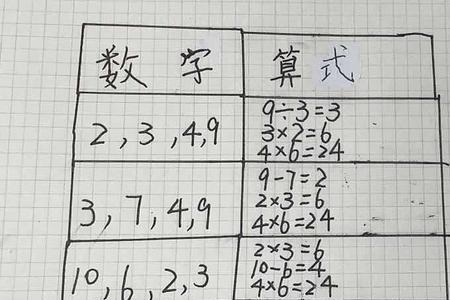 数 字 算 式
2,3,4,9
9÷3=3
3×2=6
4×6=24
3,7,4,9
9-7=2
2×3=6
4×6=24
10,6,2,3
2×3=6
10-6=4
4×6=24